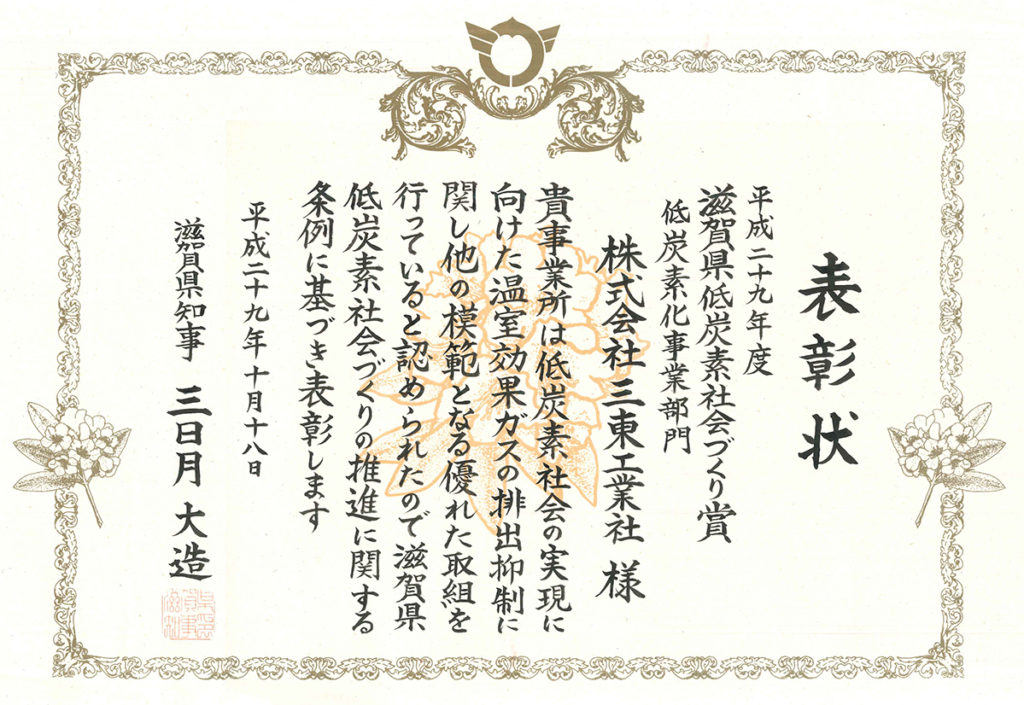 表彰状
平成二十九年度
滋賀県低炭素社会づくり賞
低炭素化事業部門
株式会社三東工業社 様
貴事業所は低炭素社会の実現に
向けた温室効果ガスの排出抑制に
関し他の模範となる優れた取組を
行っていると認められたので滋賀県
低炭素社会づくりの推進に関する
条例に基づき表彰します
平成二十九年十月十八日
滋賀県知事 三日月 大造